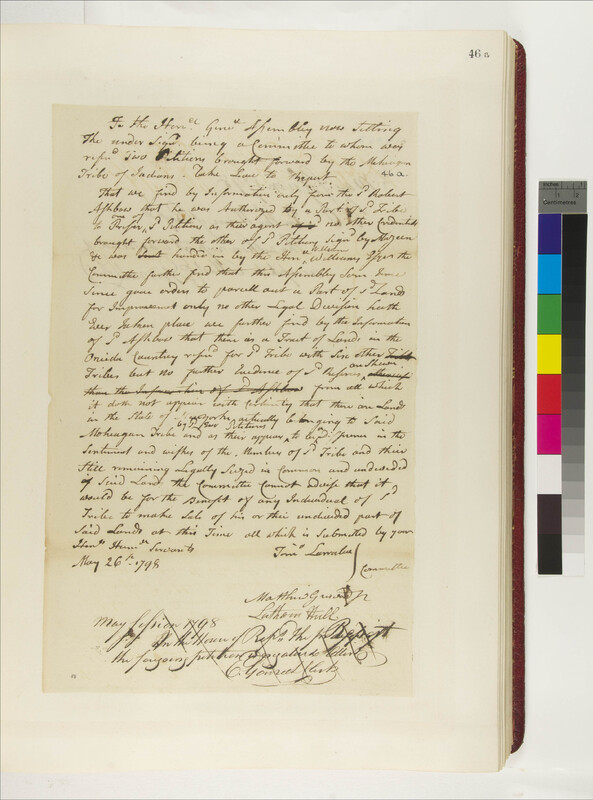 46 B
To the Hon.ᵉ Gen.ˡ Assembly now Sitting
The under Sign.ᵈ being a Committee to whom was
refer.ᵈ Two Petitions brought forward by the Mohegan
Tribe of Indians. Take Leave to Report
46 a.
That we find by Information only from the S.ᵈ Robert
Ashbow that he was Authorized by a Part of S.ᵈ Tribe
to Prefer S.ᵈ Petitions as their agent no other Credentials
brought forward the other of S.ᵈ Petitions Sign.ᵈ by
& was handed in by the Hon.ᵉ William Williams Esq.ʳ the
Committe further find that this Assembly Some time
Since gave orders to parcell out a Part of S.ᵈ Lands
for Improvement only no other Legal Division hath
Ever Taken place we further find by the Information
of S.ᵈ Ashbow that there is a Tract of Lands in the
Oneida Country reser.ᵈ for S.ᵈ Tribe with Six other
Tribes but no further Evidence of S.ᵈ
than the Information of S.ᵈ Ashbow from all which
it doth not appear with Certainty that there are Lands
in the State of New York actually belonging to Said
by S.ᵈ Two Petitions
Moheagan Tribe and as their appears to be a difference in the
Sentiment and wishes of the Members of S.ᵈ Tribe and their
Still remaining Legally Seized in Common and undivided
of Said Land the Committe Cannot Advise that it
would be for the Benefit of any Individual of S.ᵈ
Tribe to make Sale of his or their undivided part of
Said Lands at this Time all which is Submitted by your
Hon.ʳˢ Hum.ˡᵉ Servants
May 26.ᵗʰ 1798
Committee
Matthew Griswold Jr
Latham Hull
May Session 1798
In the House of Rep.ˢ The
the foregoing petition
Clerk